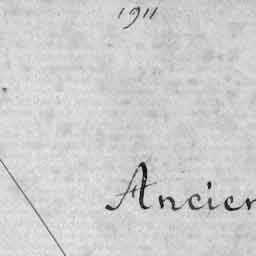 1911
Ancien